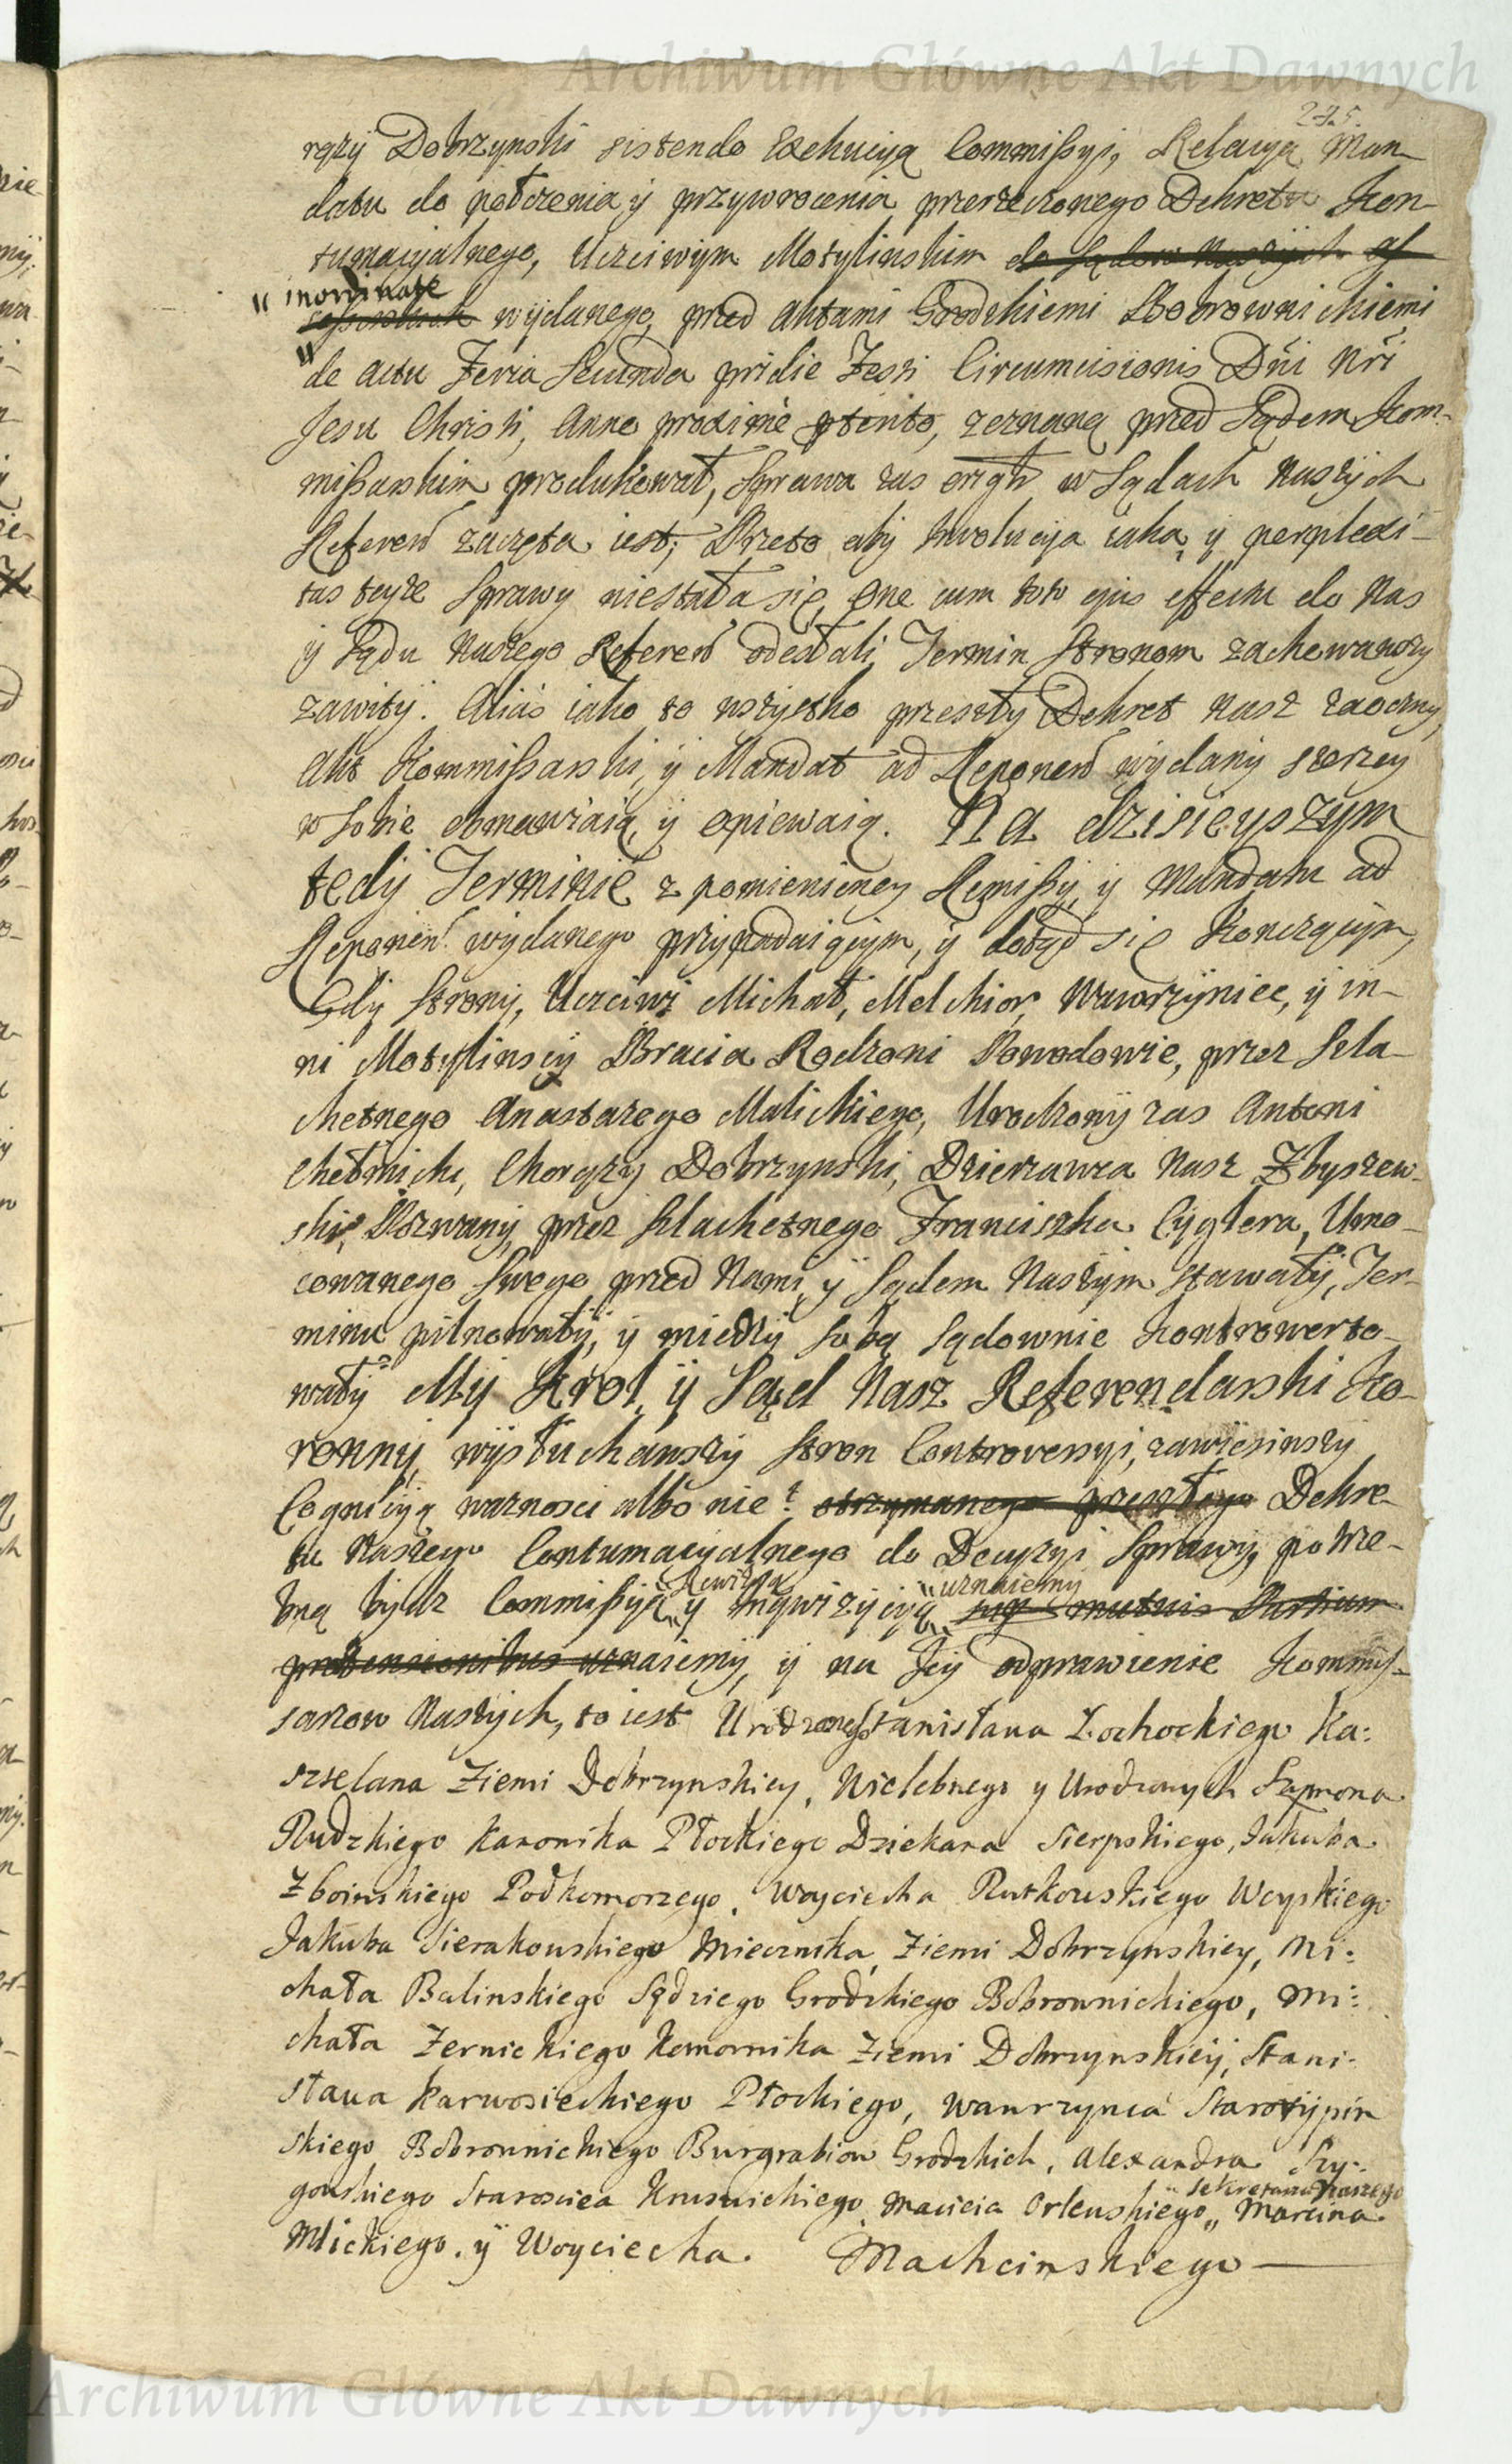 Archiwum Główne Akt Dawnych
275.
rąży Dobrzynski sistendo Exekucyą Commissyi, Relacyą Man-
datu do położenia y przywrocenia przerzeczonego Dekretu Kon-
tumacyalnego, Uczciwym Motylinskim do Sądow Naszych
" inordinate
wydanego, przed Aktami Grodzkiemi Bobrownickiemi
"de actu Feria Secunda pridie Festi Circumcisionis Dni Nri
Jesu Christi, Anno proxime pterito, zeznaną przed Sądem Kom-
missarskim produkował, Sprawa zas origtr w Sądach Naszych
Referen zaczęta iest; Przeto aby Involucya iaka y perplexi-
tas teyze Sprawy niestała się, One cum toto ejus effectu do Nas
y Sądu Naszego Referen odesłali, Termin Stronom zachowawszy
zawity. Alias iako to wszystko przeszły Dekret Nasz zaoczny,
Akt Kommissarski, y Mandat ad Reponen wydany szerzey
w Sobie obmawiaią y opiewaią. Na dzisieyszym
tedy Terminie z pomienioney Remissy, y Mandatu ad
Reponen wydanego przypadaiącym, y dotąd się Konczącym,
Gdy Strony, Uczciwi Michał, Melchior, Wawrzyniec, y in-
ni Motylinscy Bracia Rodzoni Powodowie, przez Szla-
chetnego Anastazego Malickiego, Urodzony zas Antoni
Chełmicki, Chorąży Dobrzynski, Dzierzawca Nasz Zbyszew-
ski, Pozwany, przez Szlachetnego Franciszka Cyglera, Umo-
cowanego Swego, przed Nami y Sądem Naszym stawały, Ter-
minu pilnowały, y miedzy sobą Sądownie Kontrowerto-
wały My Krol, y Sąd Nasz Referendarski Ko-
ronny, wysłuchawszy Stron Controversyi, zawiesiwszy
Cognicyą waznosci albo nie: otrzymanego przeszłego Dekre-
tu Naszego Contumacyalnego do Decyzyi Sprawy, potrze-
Rewizyą "uznaiemy
bną bydz Commissyą " y Inqwizycyą " super mutuis Partium
prætensionibus uznaiemy, y na Jey odprawienie Kommis-
sarzow Naszych, to iest Urodzonego Stanisława Zochockiego Ka:
sztelana Ziemi Dobrzynskiey, Wielebnego y Urodzonych Szymona
Rudzkiego Kanonika Płockiego Dziekana Sierpskiego, Jakuba
Zboinskiego Podkomorzego, Woyciecha Rutkowskiego Woyskiego
Jakuba Sierakowskiego Miecznika, Ziemi Dobrzynskiey, Mi:
chała Balinskiego Sędziego Grodzkiego Bobrownickiego, Mi:
chała Zernickiego Komornika Ziemi Dobrzynskiey, Stani:
sława Karwosieckiego Płockiego, Wawrzynca Starorypin
skiego Bobrownickiego Burgrabiow Grodzkich, Alexandra Szy:
Sekretarza Naszego
gowskiego Starosciea Kruswickiego Macieia Orłowskiego " Marcina
Mlickiego. y Woyciecha. Machcinskiego
Archiwum Główne Akt Dawnych